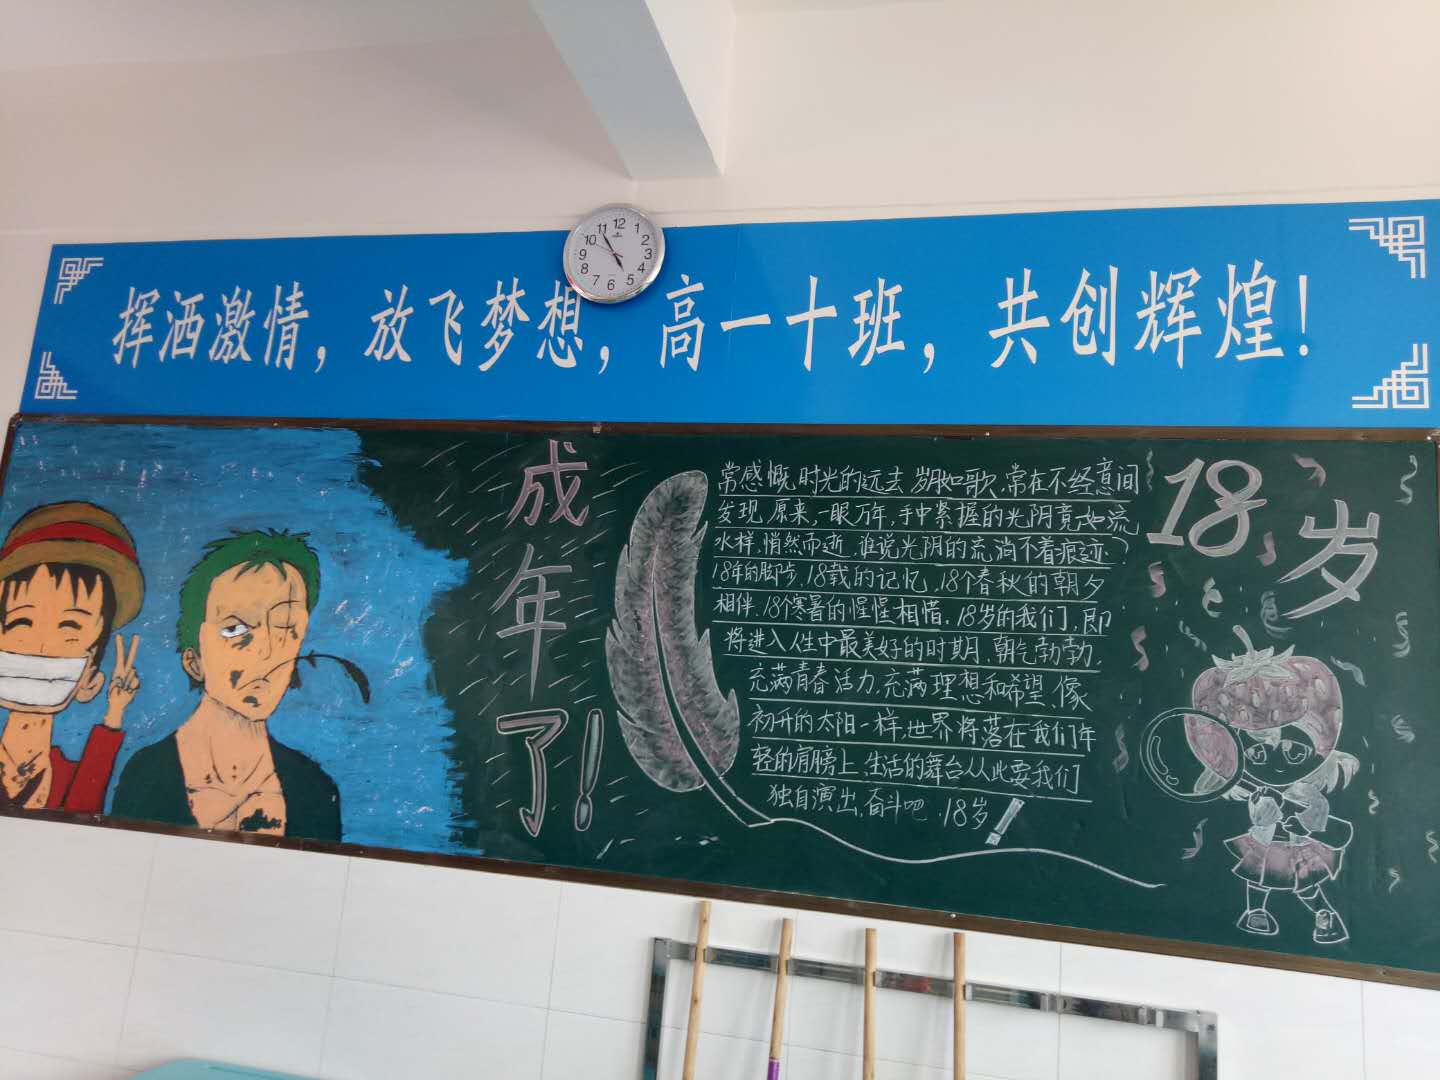 挥洒激情，放飞梦想，高一十班，共创辉煌！
12
1
2
3
4
5
6
7
8
9
10
11
成年了！
常感慨,时光的远去,岁月如歌,常在不经意间
发现,原来,一眼万年,手中紧握的光阴竟如流
水样,悄然而逝,谁说光阴的流淌不着痕迹?
18年的脚步,18载的记忆,18个春秋的朝夕
相伴,18个寒暑的惺惺相惜.18岁的我们,即
将进入人生中最美好的时期,朝气勃勃,
充满青春活力,充满理想和希望,像
初升的太阳一样,世界将落在我们年
轻的肩膀上,生活的舞台从此要我们
独自演出,奋斗吧,18岁!
18岁